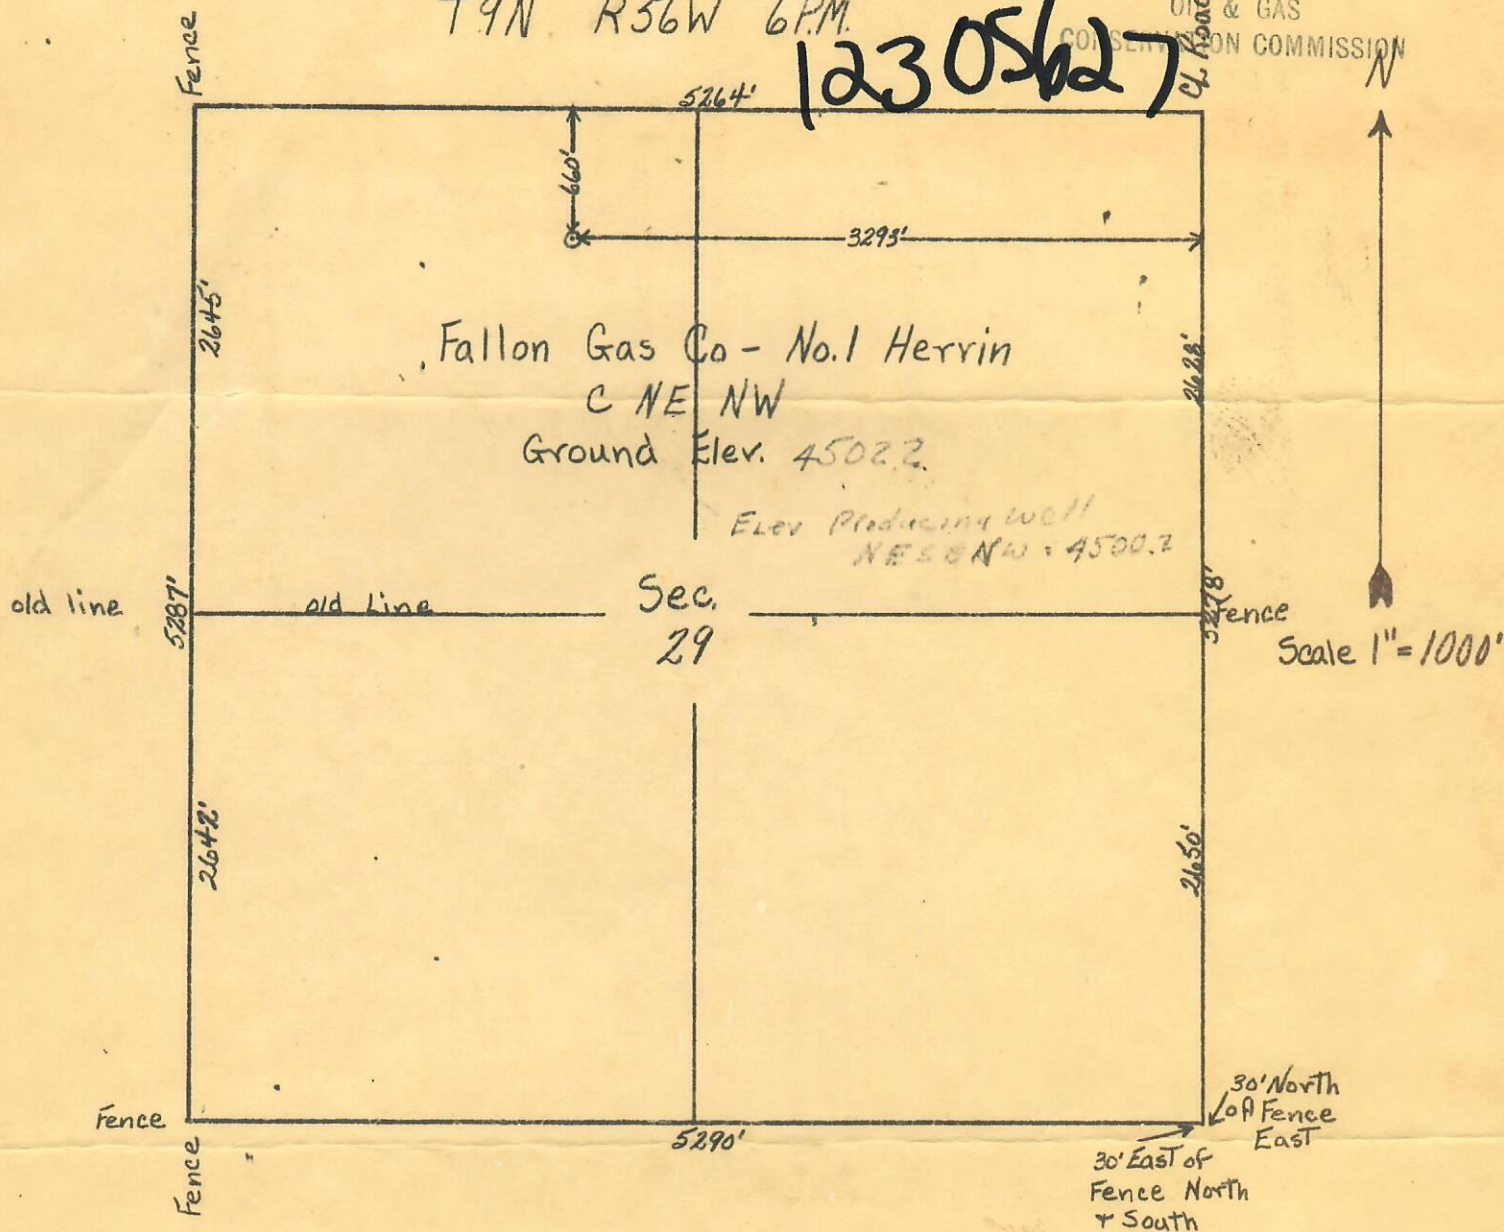 T9N R56W 6P.M.
OIL & GAS
CONSERVATION COMMISSION
12305627
Fence
C/L Road
N
5264'
660'
3293'
2645'
2628'
Fallon Gas Co - No.1 Herrin
C NE NW
Ground Elev. 4502.2
Elev Producing Well
NE SE NW = 4500.2
old line
5287'
old Line
Sec.
29
5278'
Fence
Scale 1"=1000'
2642'
2650'
Fence
Fence
5290'
30' North
of Fence
East
30' East of
Fence North
+ South